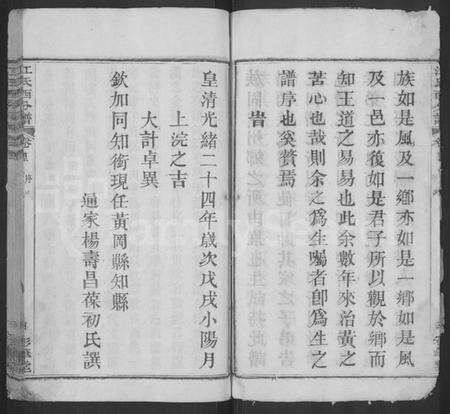 族如是風及一鄉亦如是一鄉如是風
及一邑亦復如是君子所以觀於鄉而
知王道之易易也此余數年來治黃之
苦心也哉則余之爲生囑者卽爲生之
譜序也奚贅焉
旹
皇清光緒二十四年歲次戊戌小陽月
上浣之吉
大計卓異
欽加同知銜現任黃岡縣知縣
通家楊壽昌葆初氏譔
江氏
分譜
卷首